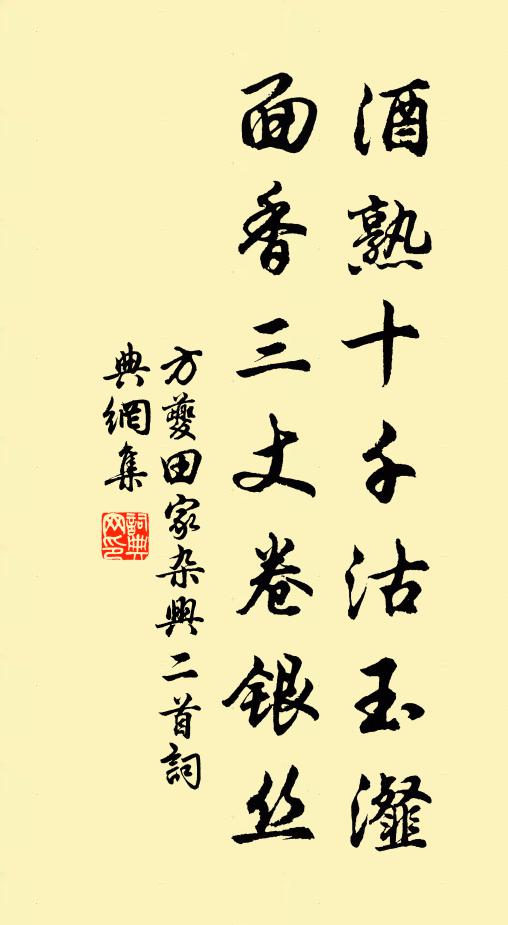 酒熟十千沽玉瀣
面香三丈卷銀丝
方夔田家杂興二首詞
典網集
詞典
网印